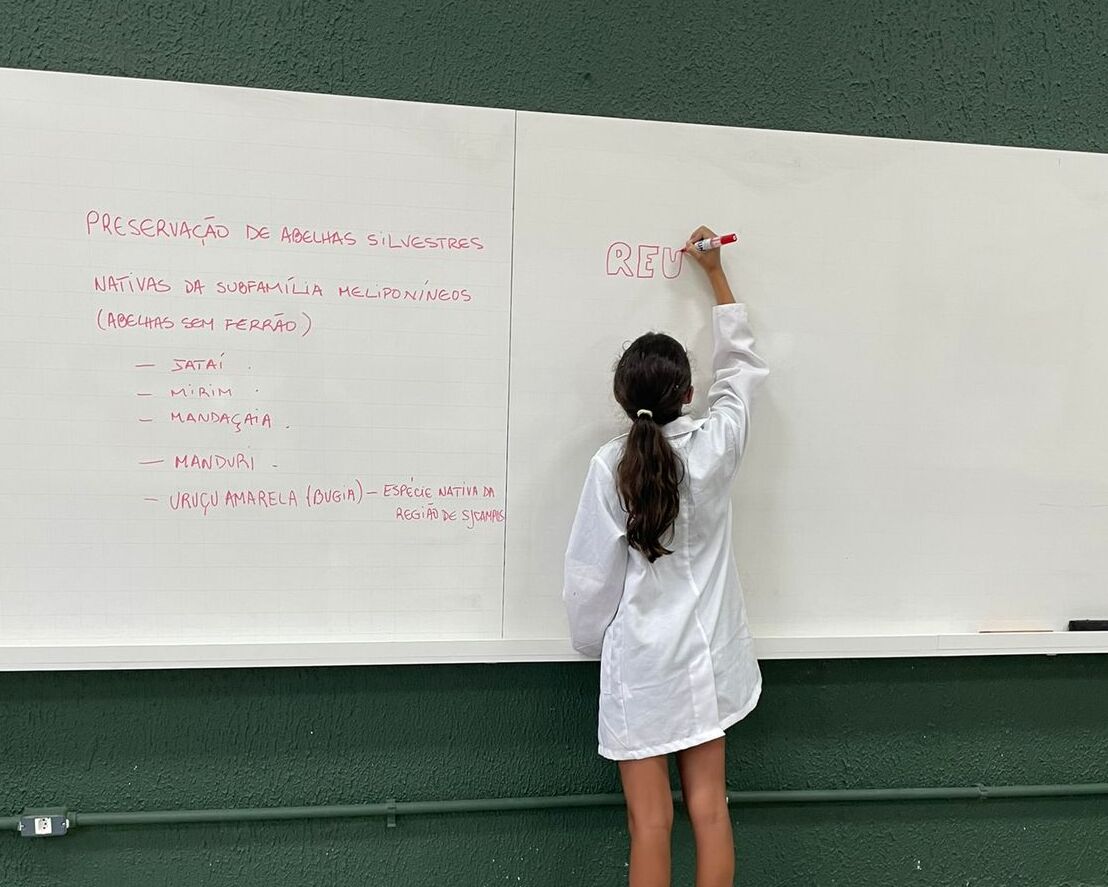 PRESERVAÇÃO DE ABELHAS SILVESTRES
NATIVAS DA SUBFAMÍLIA MELIPONÍNEOS
(ABELHAS SEM FERRÃO)
— JATAÍ .
— MIRIM .
— MANDAÇAIA .
— MANDURI .
— URUÇU AMARELA (BUGIA) — ESPÉCIE NATIVA DA
REGIÃO DE SJCAMPOS
REU